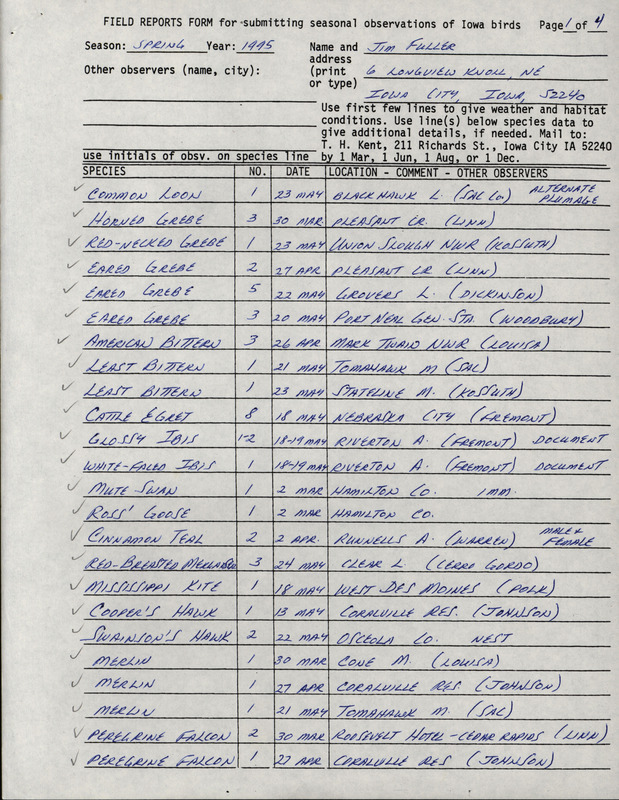 FIELD REPORTS FORM for submitting seasonal observations of Iowa birds Page 1 of 4
Season: SPRING Year: 1995 Name and JIM FULLER
address
Other observers (name, city): (print 6 LONGVIEW KNOLL, NE
or type)
IOWA CITY, IOWA, 52240
Use first few lines to give weather and habitat
conditions. Use line(s) below species data to
give additional details, if needed. Mail to:
T. H. Kent, 211 Richards St., Iowa City IA 52240
use initials of obsv. on species line by 1 Mar, 1 Jun, 1 Aug, or 1 Dec.
SPECIES NO. DATE LOCATION - COMMENT - OTHER OBSERVERS
✓ COMMON LOON 1 23 MAY BLACK HAWK L. (SAC CO.) ALTERNATE PLUMAGE
✓ HORNED GREBE 3 30 MAR PLEASANT CR. (LINN)
✓ RED-NECKED GREBE 1 23 MAY UNION SLOUGH NWR (KOSSUTH)
✓ EARED GREBE 2 27 APR PLEASANT CR (LINN)
✓ EARED GREBE 5 22 MAY GROVERS L. (DICKINSON)
✓ EARED GREBE 3 20 MAY PORT NEAL GEN. STA. (WOODBURY)
✓ AMERICAN BITTERN 3 26 APR MARK TWAIN NWR (LOUISA)
✓ LEAST BITTERN 1 21 MAY TOMAHAWK M (SAC)
✓ LEAST BITTERN 1 23 MAY STATELINE M. (KOSSUTH)
✓ CATTLE EGRET 8 18 MAY NEBRASKA CITY (FREMONT)
✓ GLOSSY IBIS 1-2 18-19 MAY RIVERTON A. (FREMONT) DOCUMENT
✓ WHITE-FACED IBIS 1 18-19 MAY RIVERTON A. (FREMONT) DOCUMENT
✓ MUTE SWAN 1 2 MAR HAMILTON CO. IMM.
✓ ROSS' GOOSE 1 2 MAR HAMILTON CO.
✓ CINNAMON TEAL 2 2 APR. RUNNELLS A. (WARREN) MALE & FEMALE
✓ RED-BREASTED MERGANSER 3 24 MAY CLEAR L (CERRO GORDO)
✓ MISSISSIPPI KITE 1 18 MAY WEST DES MOINES (POLK)
✓ COOPER'S HAWK 1 13 MAY CORALVILLE RES. (JOHNSON)
✓ SWAINSON'S HAWK 2 22 MAY OSCEOLA CO. NEST
✓ MERLIN 1 30 MAR CONE M. (LOUISA)
✓ MERLIN 1 27 APR CORALVILLE RES. (JOHNSON)
✓ MERLIN 1 21 MAY TOMAHAWK M. (SAC)
✓ PEREGRINE FALCON 2 30 MAR ROOSEVELT HOTEL - CEDAR RAPIDS (LINN)
✓ PEREGRINE FALCON 1 27 APR CORALVILLE RES (JOHNSON)